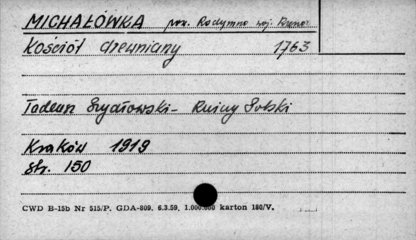 MICHAŁÓWKA pow. Radymno woj.
Kościół drewniany 1763
Tadeusz Szydłowski - Ruiny Polski
Kraków 1919
str. 150
CWD B-15b Nr 515/P. GDA-809. 6.3.59. 1.000.000 karton 180/V.